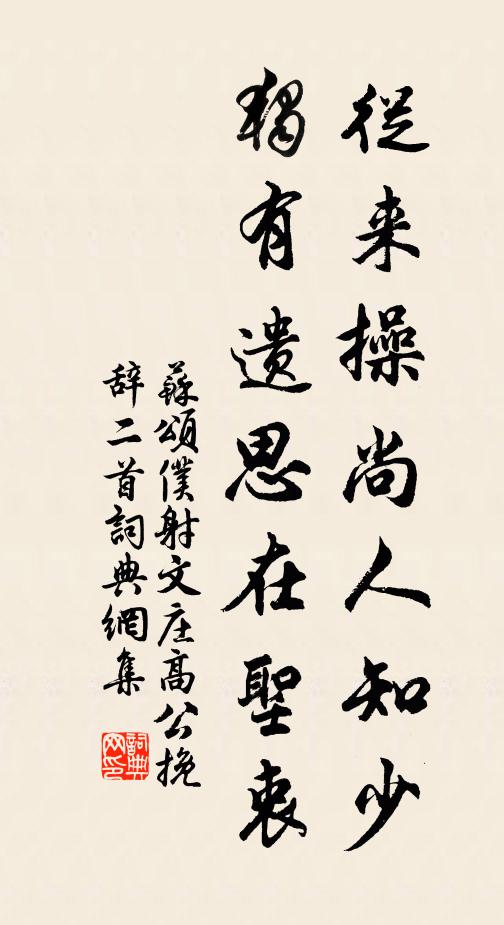 從来操尚人知少
獨有遺思在聖衷
蘇頌僕射文庄高公挽
辞二首詞典網集
詞典網印